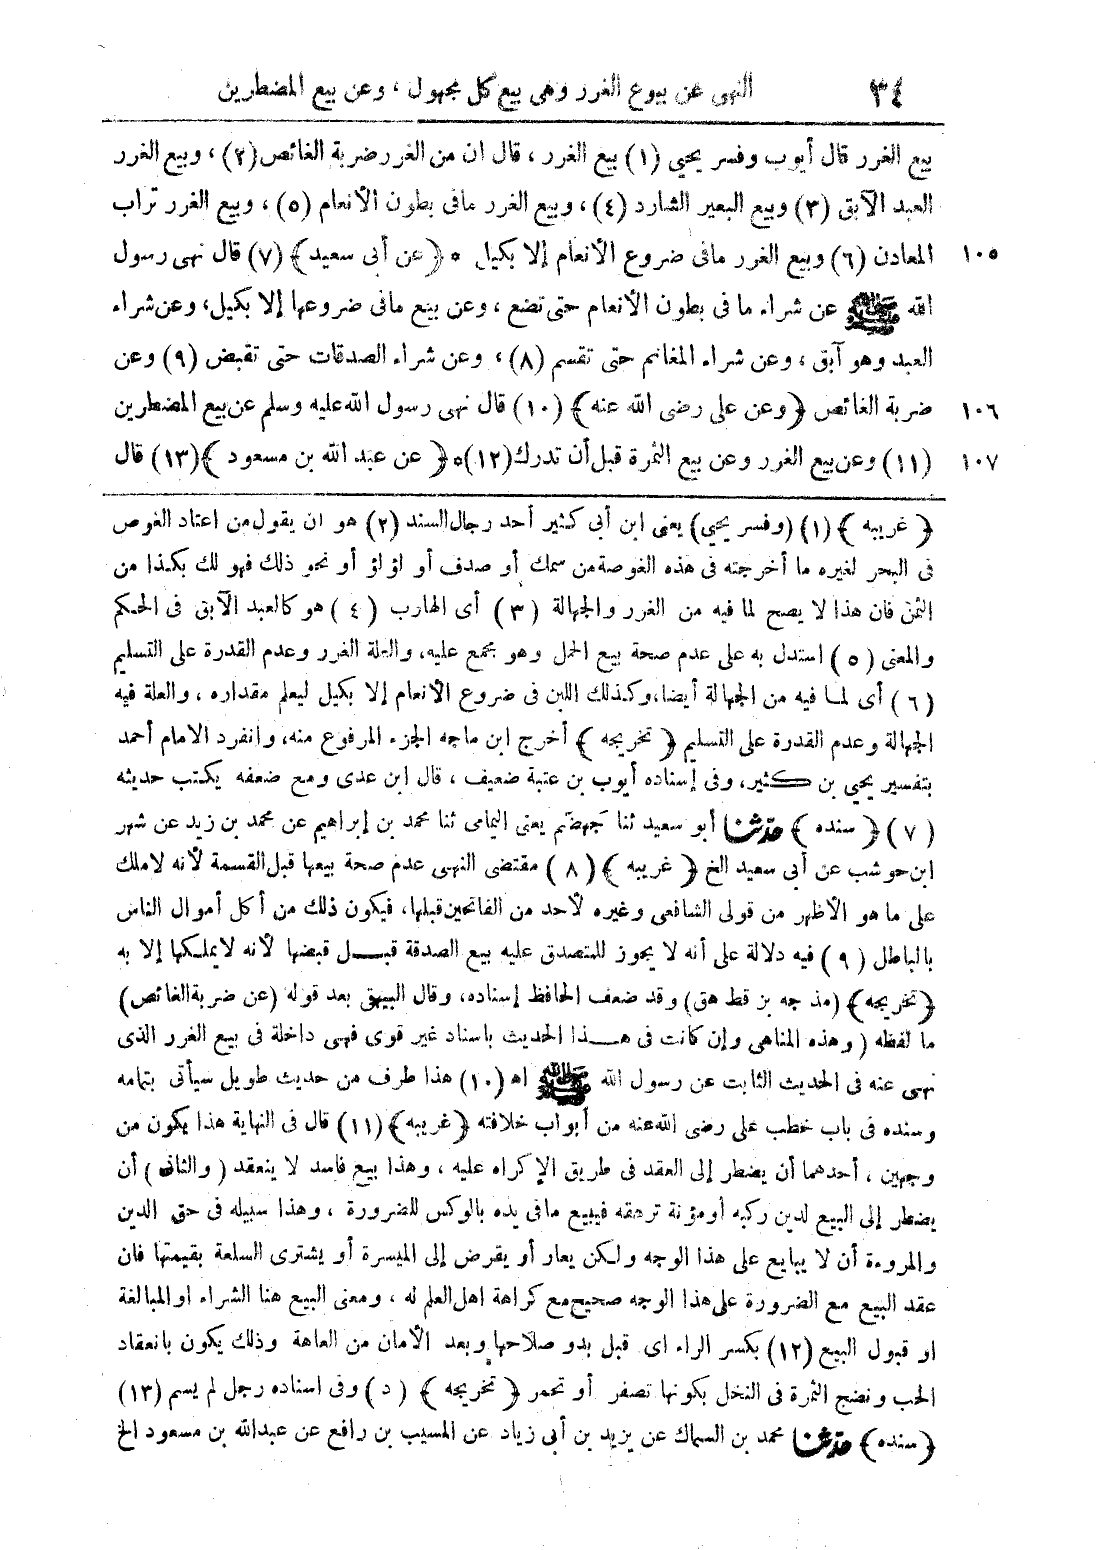 ٣٤ النهى عن بيوع الغرر وهى بيع كل مجهول ، وعن بيع المضطرين
بيع الغرر قال أيوب وفسر يحيى (١) بيع الغرر ، قال ان من الغرر ضربة الغائص (٢) ، وبيع الغرر
العبد الآبق (٣) وبيع البعير الشارد (٤) ، وبيع الغرر مافى بطون الأنعام (٥) ، وبيع الغرر تراب
١٠٥ المعادن (٦) وبيع الغرر مافى ضروع الأنعام إلا بكيل ٥ ﴿ عن أبى سعيد ﴾ (٧) قال نهى رسول
الله ﷺ عن شراء ما فى بطون الأنعام حتى تضع ، وعن بيع مافى ضروعها إلا بكيل، وعن شراء
العبد وهو آبق ، وعن شراء المغانم حتى تقسم (٨) ، وعن شراء الصدقات حتى تقبض (٩) وعن
١٠٦ ضربة الغائص ﴿ وعن على رضى الله عنه ﴾ (١٠) قال نهى رسول الله عليه وسلم عن بيع المضطرين
١٠٧ (١١) وعن بيع الغرر وعن بيع الثمرة قبل أن تدرك (١٢) ٥ ﴿ عن عبد الله بن مسعود ﴾ (١٣) قال
﴿ غريبه ﴾ (١) (وفسر يحيى) يعنى ابن أبى كثير أحد رجال السند (٢) هو ان يقول من اعتاد الغوص
فى البحر لغيره ما أخرجته فى هذه الغوصة من سمك أو صدف أو لؤلؤ أو نحو ذلك فهو لك بكذا من
الثمن فان هذا لا يصح لما فيه من الغرر والجهالة (٣) أى الهارب (٤) هو كالعبد الآبق فى الحكم
والمعنى (٥) استدل به على عدم صحة بيع الحمل وهو مجمع عليه، والعلة الغرر وعدم القدرة على التسليم
(٦) أى لما فيه من الجهالة أيضا، وكذلك اللبن فى ضروع الأنعام إلا بكيل ليعلم مقداره ، والعلة فيه
الجهالة وعدم القدرة على التسليم ﴿ تخريجه ﴾ أخرج ابن ماجه الجزء المرفوع منه، وانفرد الامام أحمد
بتفسير يحيى بن كثير، وفى إسناده أيوب بن عتبة ضعيف ، قال ابن عدى ومع ضعفه يكتب حديثه
(٧) ﴿ سنده ﴾ حدثنا أبو سعيد ثنا جهضم يعنى اليمامى ثنا محمد بن إبراهيم عن محمد بن زيد عن شهر
ابن حوشب عن أبى سعيد الخ ﴿ غريبه ﴾ (٨) مقتضى النهى عدم صحة بيعها قبل القسمة لأنه لا ملك
على ما هو الأظهر من قولى الشافعى وغيره لأحد من الفاتحين قبلها، فيكون ذلك من أكل أموال الناس
بالباطل (٩) فيه دلالة على أنه لا يجوز للمتصدق عليه بيع الصدقة قبل قبضها لأنه لا يملكها إلا به
﴿ تخريجه ﴾ (مذ جه بز قط هق) وقد ضعف الحافظ إسناده، وقال البيهقى بعد قوله (عن ضربة الغائص)
ما لفظه (وهذه المناهى وإن كانت فى هذا الحديث باسناد غير قوى فهى داخلة فى بيع الغرر الذى
نهى عنه فى الحديث الثابت عن رسول الله ﷺ اه (١٠) هذا طرف من حديث طويل سيأتى بتمامه
وسنده فى باب خطب على رضى الله عنه من أبواب خلافته ﴿ غريبه ﴾ (١١) قال فى النهاية هذا يكون من
وجهين ، أحدهما أن يضطر إلى العقد فى طريق الإكراه عليه ، وهذا بيع فاسد لا ينعقد (والثانى) أن
يضطر إلى البيع لدين ركبه أو مؤنة ترهقه فيبيع مافى يده بالوكس للضرورة ، وهذا سبيله فى حق الدين
والمروءة أن لا يبايع على هذا الوجه ولكن يعار أو يقرض إلى الميسرة أو يشترى السلعة بقيمتها فان
عقد البيع مع الضرورة على هذا الوجه صحيح مع كراهة اهل العلم له ، ومعنى البيع هنا الشراء او المبالغة
او قبول البيع (١٢) بكسر الراء اى قبل بدو صلاحها وبعد الأمان من العاهة وذلك يكون بانعقاد
الحب ونضج الثمرة فى النخل بكونها تصفر أو تحمر ﴿ تخريجه ﴾ (د) وفى اسناده رجل لم يسم (١٣)
﴿ سنده ﴾ حدثنا محمد بن السماك عن يزيد بن أبى زياد عن المسيب بن رافع عن عبدالله بن مسعود الخ